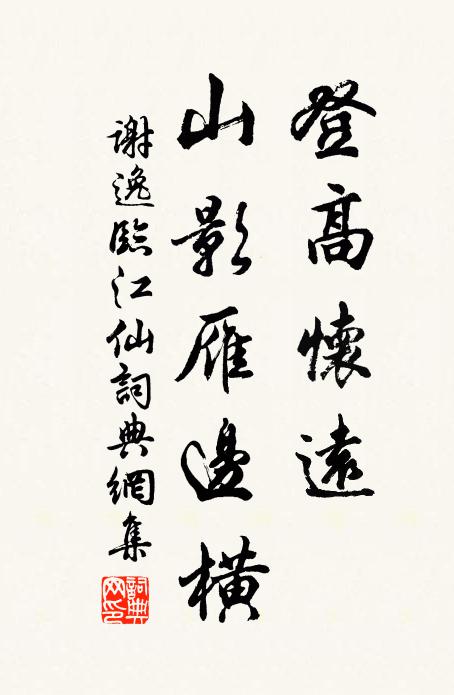 登高懷遠
山影雁邊橫
謝逸臨江仙詞典網集
詞典網印